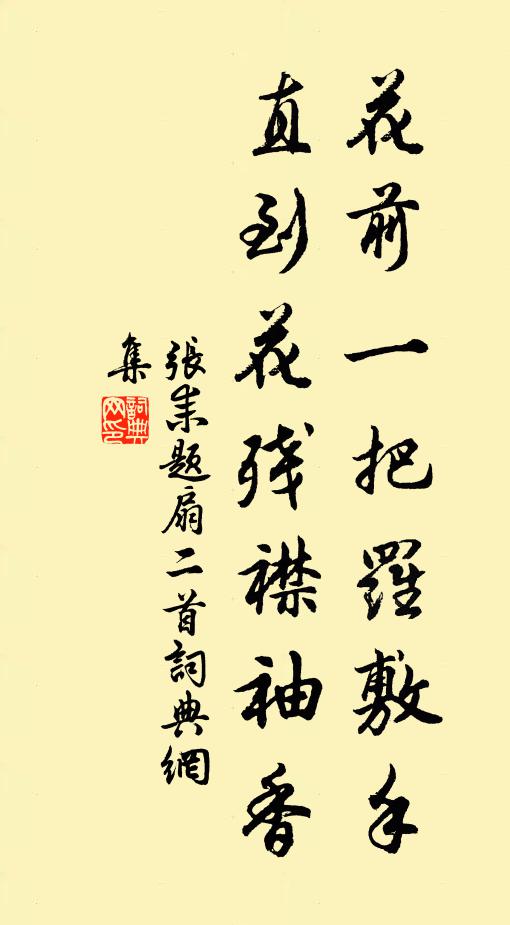 花前一把羅敷手
直到花残襟袖香
張耒題扇二首詞典網
集
詞典
网印